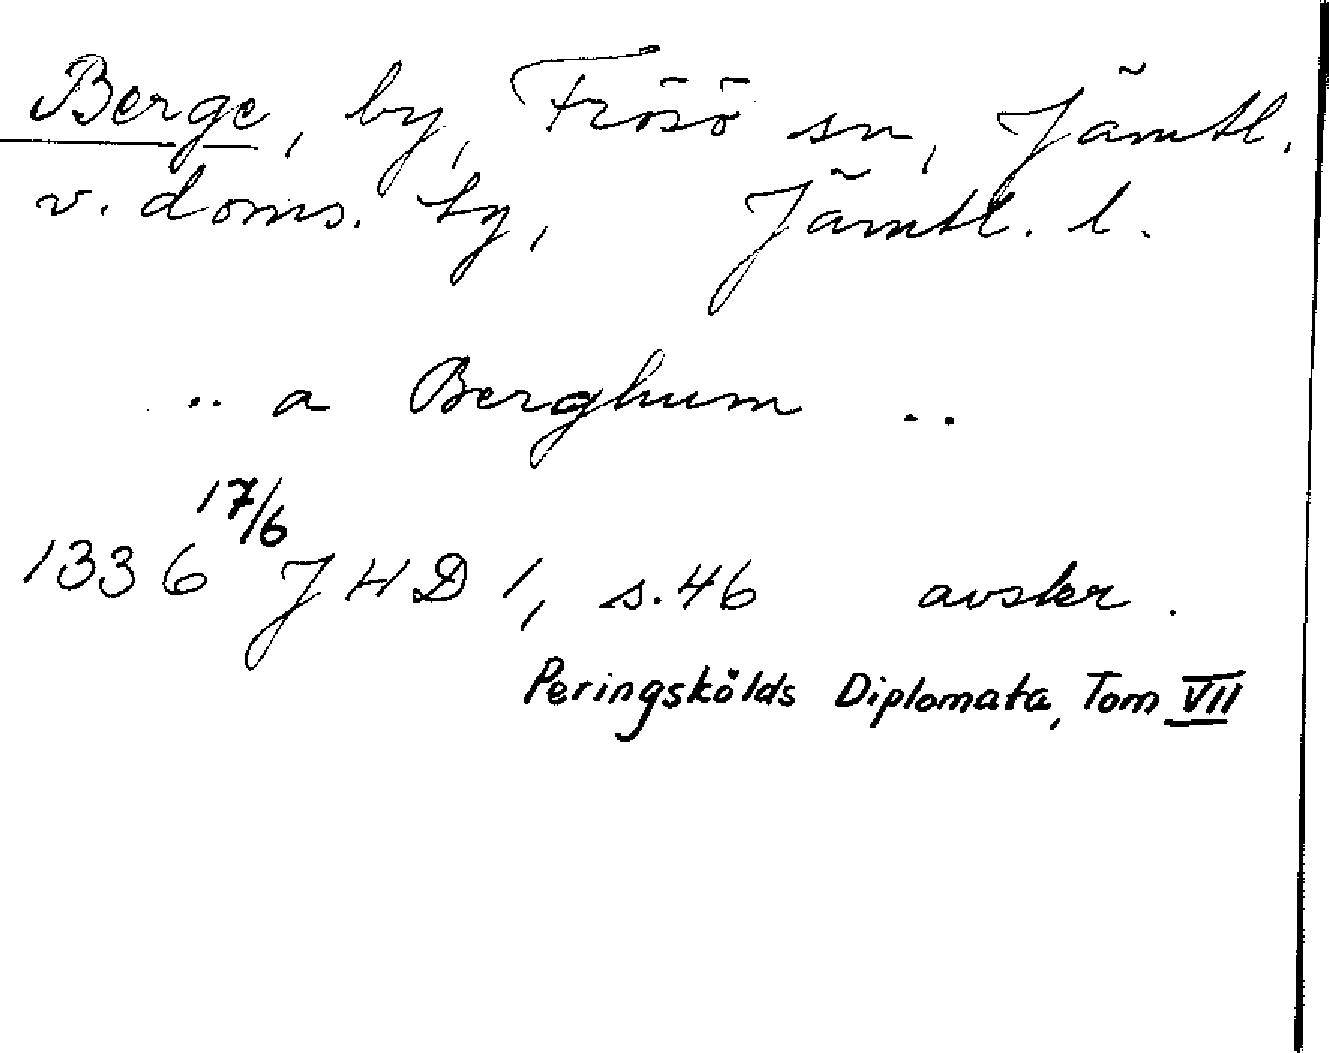 Berge, by, Frösö sn, Jämtl.
v. doms. by, Jämtl. l.
.. a Berghum ..
1336 17/6 JHD 1, s. 46 avskr.
Peringskölds Diplomata, Tom VII